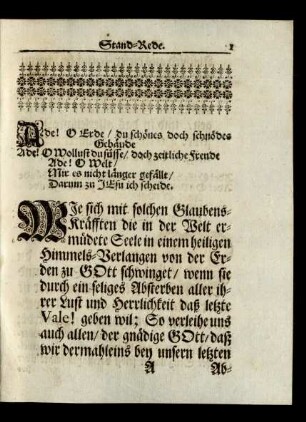 Stand-Rede. 1
Ade! O Erde / du schönes doch schnödes
Gebäude
Ade! O Wollust du süsse / doch zeitliche Freude
Ade! O Welt /
Mir es nicht länger gefälle /
Darum zu JEsu ich scheide.
WIe sich mit solchen Glaubens-
Kräfften die in der Welt er-
müdete Seele in einem heiligen
Himmels-Verlangen von der Er-
den zu GOtt schwinget / wenn sie
durch ein seliges Absterben aller ih-
rer Lust und Herrlichkeit daß letzte
Vale! geben wil; So verleihe uns
auch allen / der gnädige GOtt / daß
wir dermahleins bey unsern letzten
A Ab-